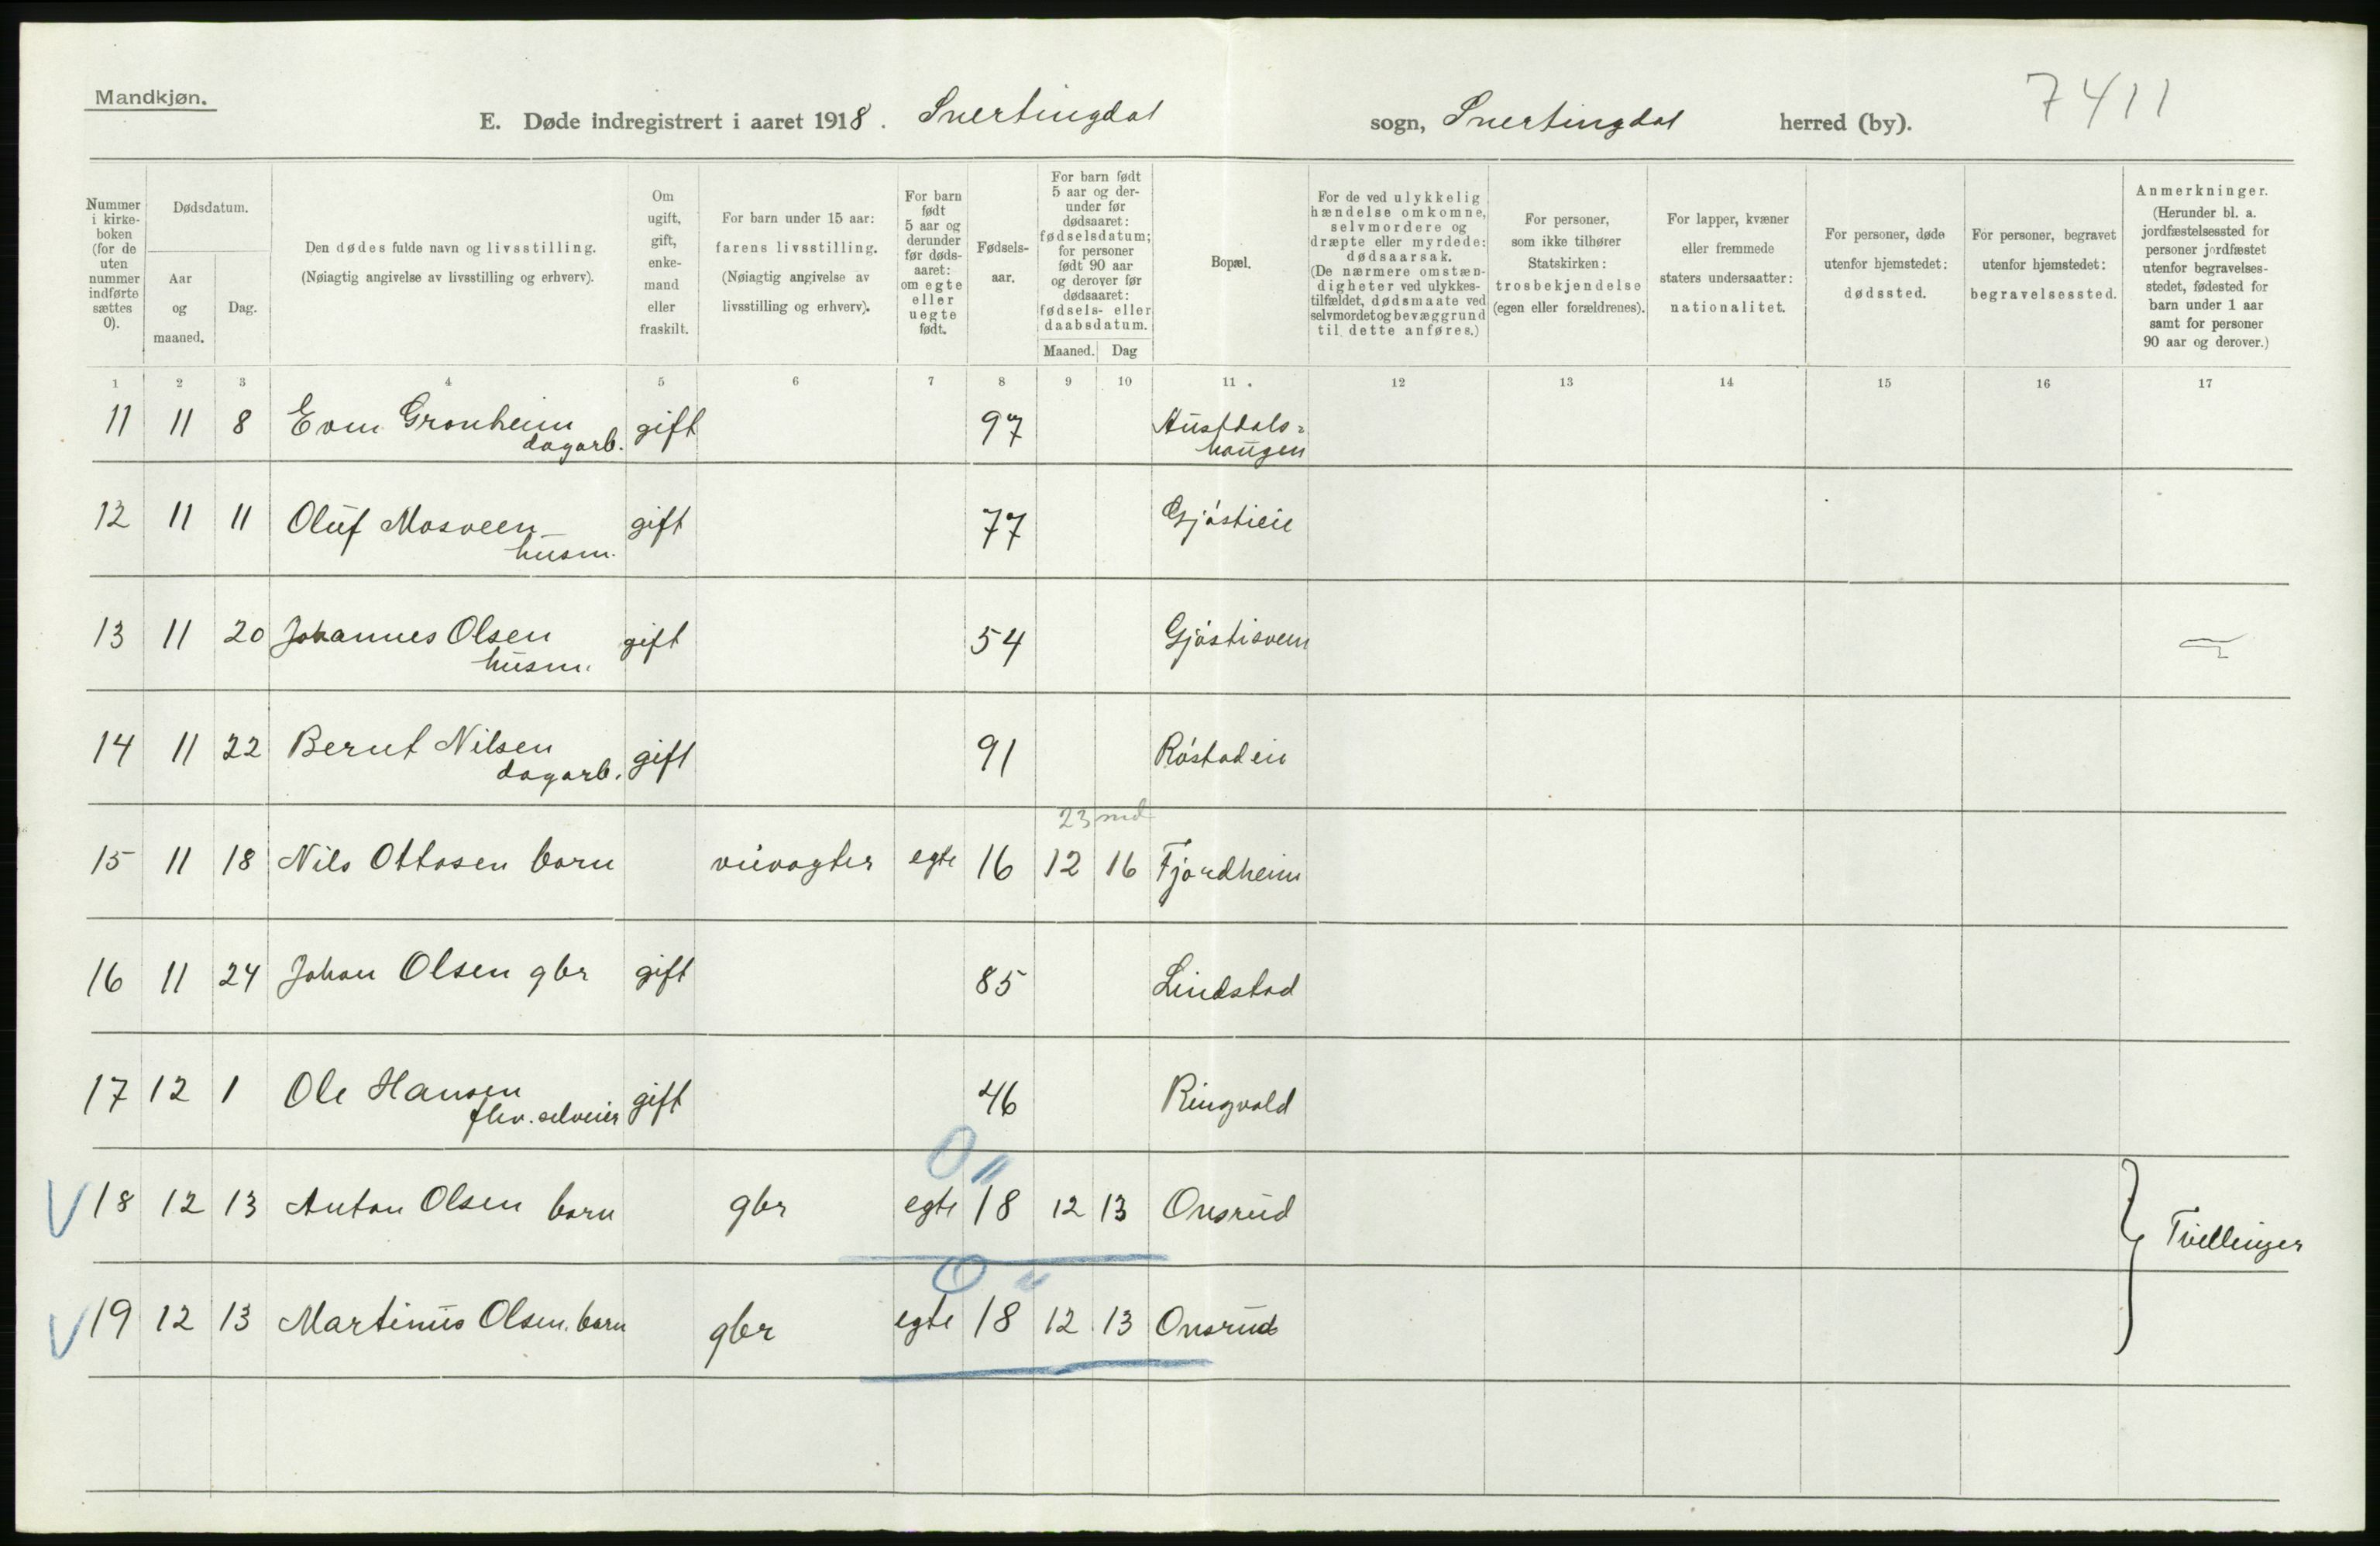 Mandkjøn.
E. Døde indregistrert i aaret 1918. Snertingdal sogn, Snertingdal herred (by).
7411
Nummer i kirke-boken (for de uten nummer indførte sættes 0).
Dødsdatum.
Aar og maaned.
Dag.
Den dødes fulde navn og livsstilling.
(Nøiagtig angivelse av livsstilling og erhverv).
Om ugift, gift, enke-mand eller fraskilt.
For barn under 15 aar: farens livsstilling.
(Nøiagtig angivelse av livsstilling og erhverv).
For barn født 5 aar og derunder før døds-aaret: om egte eller uegte født.
Fødsels-aar.
For barn født 5 aar og der-under før dødsaaret: fødselsdatum; for personer født 90 aar og derover før dødsaaret: fødsels- eller daabsdatum.
Maaned.
Dag
Bopæl.
For de ved ulykkelig hændelse omkomne, selvmordere og dræpte eller myrdede: dødsaarsak.
(De nærmere omstæn-digheter ved ulykkes-tilfældet, dødsmaate ved selvmordet og bevæggrund til dette anføres.)
For personer, som ikke tilhører Statskirken: trosbekjendelse (egen eller forældrenes).
For lapper, kvæner eller fremmede staters undersaatter: nationalitet.
For personer, døde utenfor hjemstedet: dødssted.
For personer, begravet utenfor hjemstedet: begravelsessted.
Anmerkninger.
(Herunder bl. a. jordfæstelsessted for personer jordfæstet utenfor begravelses-stedet, fødested for barn under 1 aar samt for personer 90 aar og derover.)
1 2 3 4 5 6 7 8 9 10 11 12 13 14 15 16 17
11 11 8 Even Gronheim gift 97 Austdals=
dagarb. haugen
12 11 11 Oluf Mosveen gift 77 Gjøstieie
husm.
13 11 20 Johannes Olsen gift 54 Gjøstisveen
husm.
14 11 22 Bernt Nilsen gift 91 Røstadeie
dagarb.
23 md
15 11 18 Nils Ottosen barn veivogter egte 16 12 16 Fjordheim
16 11 24 Johan Olsen gbr gift 85 Lindstad
17 12 1 Ole Hansen gift 46 Ringvold
flev. selveier
0 "
V 18 12 13 Anton Olsen barn gbr egte 18 12 13 Onsrud
} Tvillinger
0 "
V 19 12 13 Martinus Olsen. barn gbr egte 18 12 13 Onsrud